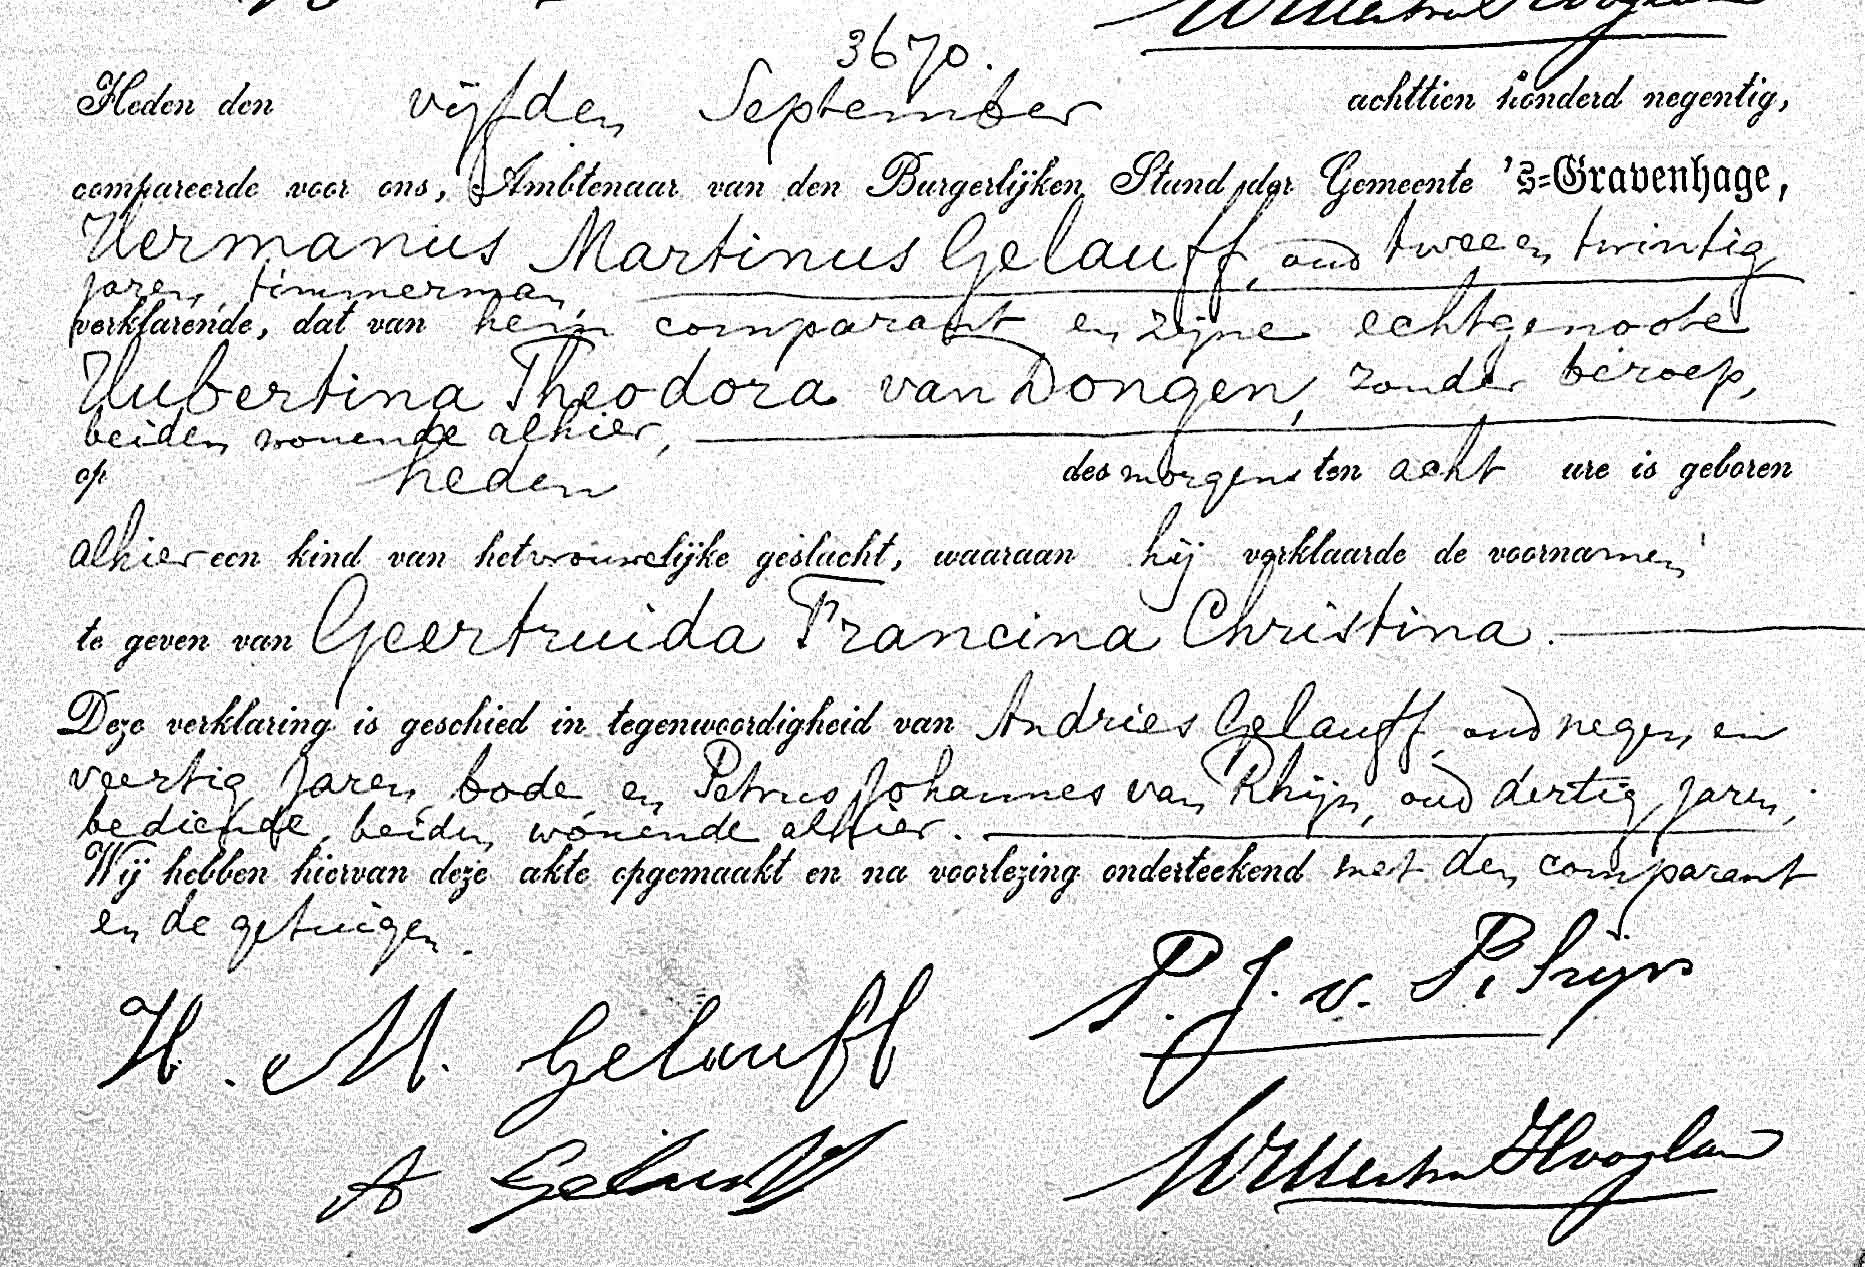 3670.
Heden den vijfden September achttien honderd negentig,
compareerde voor ons, Ambtenaar van den Burgerlijken Stand der Gemeente 's-Gravenhage,
Hermanus Martinus Gelauff, oud twee en twintig
jaren, timmerman
verklarende, dat van hem comparant en zijne echtgenoote
Hubertina Theodora van Dongen, zonder beroep,
beiden wonende alhier,
op heden des morgens ten acht ure is geboren
alhier een kind van het vrouwelijke geslacht, waaraan hij verklaarde de voornamen
te geven van Geertruida Francina Christina.
Deze verklaring is geschied in tegenwoordigheid van Andries Gelauff, oud negen en
veertig jaren, bode en Petrus Johannes van Rhijn, oud dertig jaren,
bediende, beiden wonende alhier.
Wij hebben hiervan deze akte opgemaakt en na voorlezing onderteekend met den comparant
en de getuigen.
P. J. v. Rhijn
H. M. Gelauff
A Gelauff